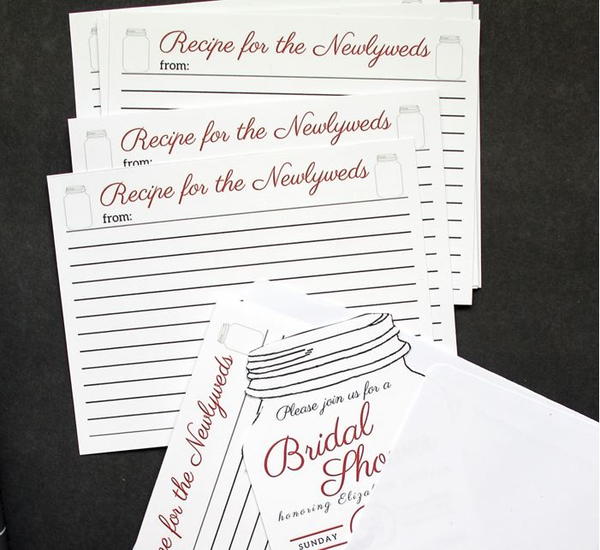 Recipe for the Newlyweds
from:
Recipe for the Newlyweds
from:
Recipe for the Newlyweds
from:
e for the Newlyweds
Please join us for a
Bridal
Sho
honoring Eliza
SUNDAY